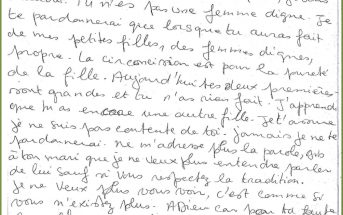 Tu n'es pas une femme digne. Je
te pardonnerai que lorsque tu auras fait
de mes petites filles, des femmes dignes,
propre. La circoncision est pour la pureté
de la fille. Aujourd'hui tes deux premières
sont grandes et tu n'as rien fait. J'apprend
que tu as encore une autre fille. Je t'avoue
je ne suis pas contente de toi. Jamais je ne te
pardonnerai. Ne m'adresse plus la parole, dis
à ton mari que je ne veux plus entendre parler
de lui sauf si vous respectez la tradition.
Je ne veux plus vous voir, c'est comme si
vous n'existiez plus. Adieu car pour ta tante